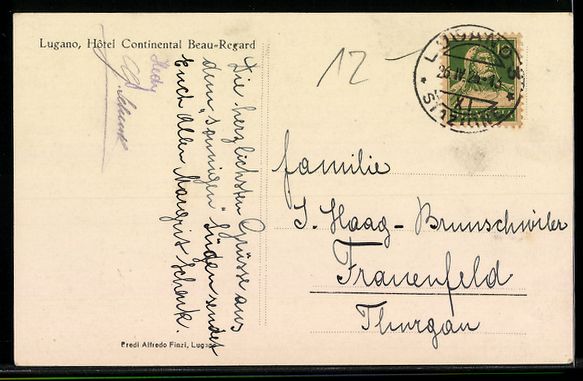 Lugano, Hôtel Continental Beau-Regard
12
Die herzlichsten Grüsse aus
dem "sonnigen" Süden sendet
Euch Allen Margrit Schenk.
Hedy
Schenk
Familie
J. Haag-Brunschwiler
Frauenfeld
Thurgau
LUGANO 3
Predi Alfredo Finzi, Lugano